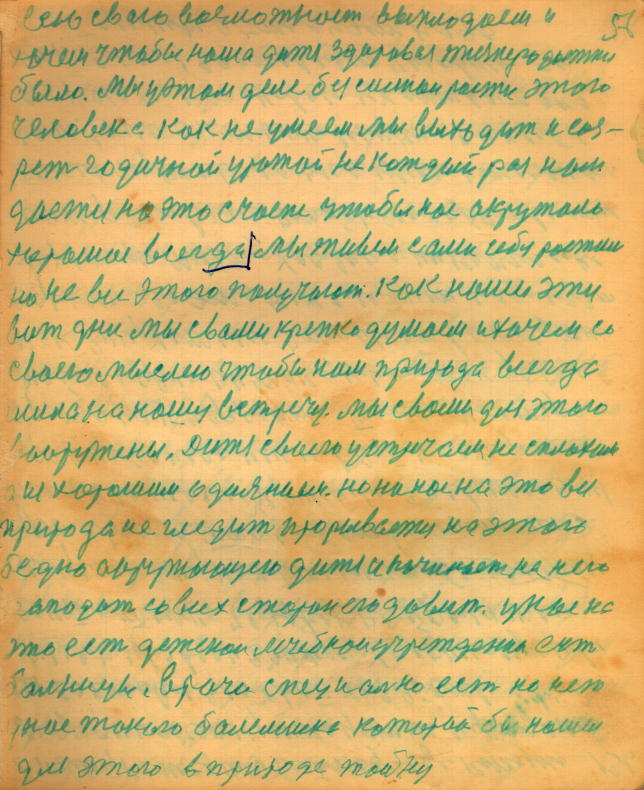 56
всю свою возможность выкладаем и
хочем чтобы наша дитя здоровая жизнерадостная
было. Мы у этом деле бессилны рости этого
человека как не умеем мы выходит и
годичной урожай не каждый раз нам
дается на это счастье чтобы нас окружало
хорошое всегда мы живем сами себя ростим
но не все этого получаем. Как наши эти
вот дни мы с вами крепко думаем и хочем со
своею мыслею чтобы нам природа всегда
шла на нашу встречу. Мы с вами для этого
вооружены. Дитя своего устричаем не с плохим
а и с хорошим одиянием. но на нас на это все
природа не гледит прорывается на этого
бедно окружающею дитя и начинает на него
нападат со всех сторон его давит. у нас на
это ест детской лечебной учреждении ест
больницы. врачи специално ест но нет
у нас такого человека которой бы нашел
для этого в природе тайну